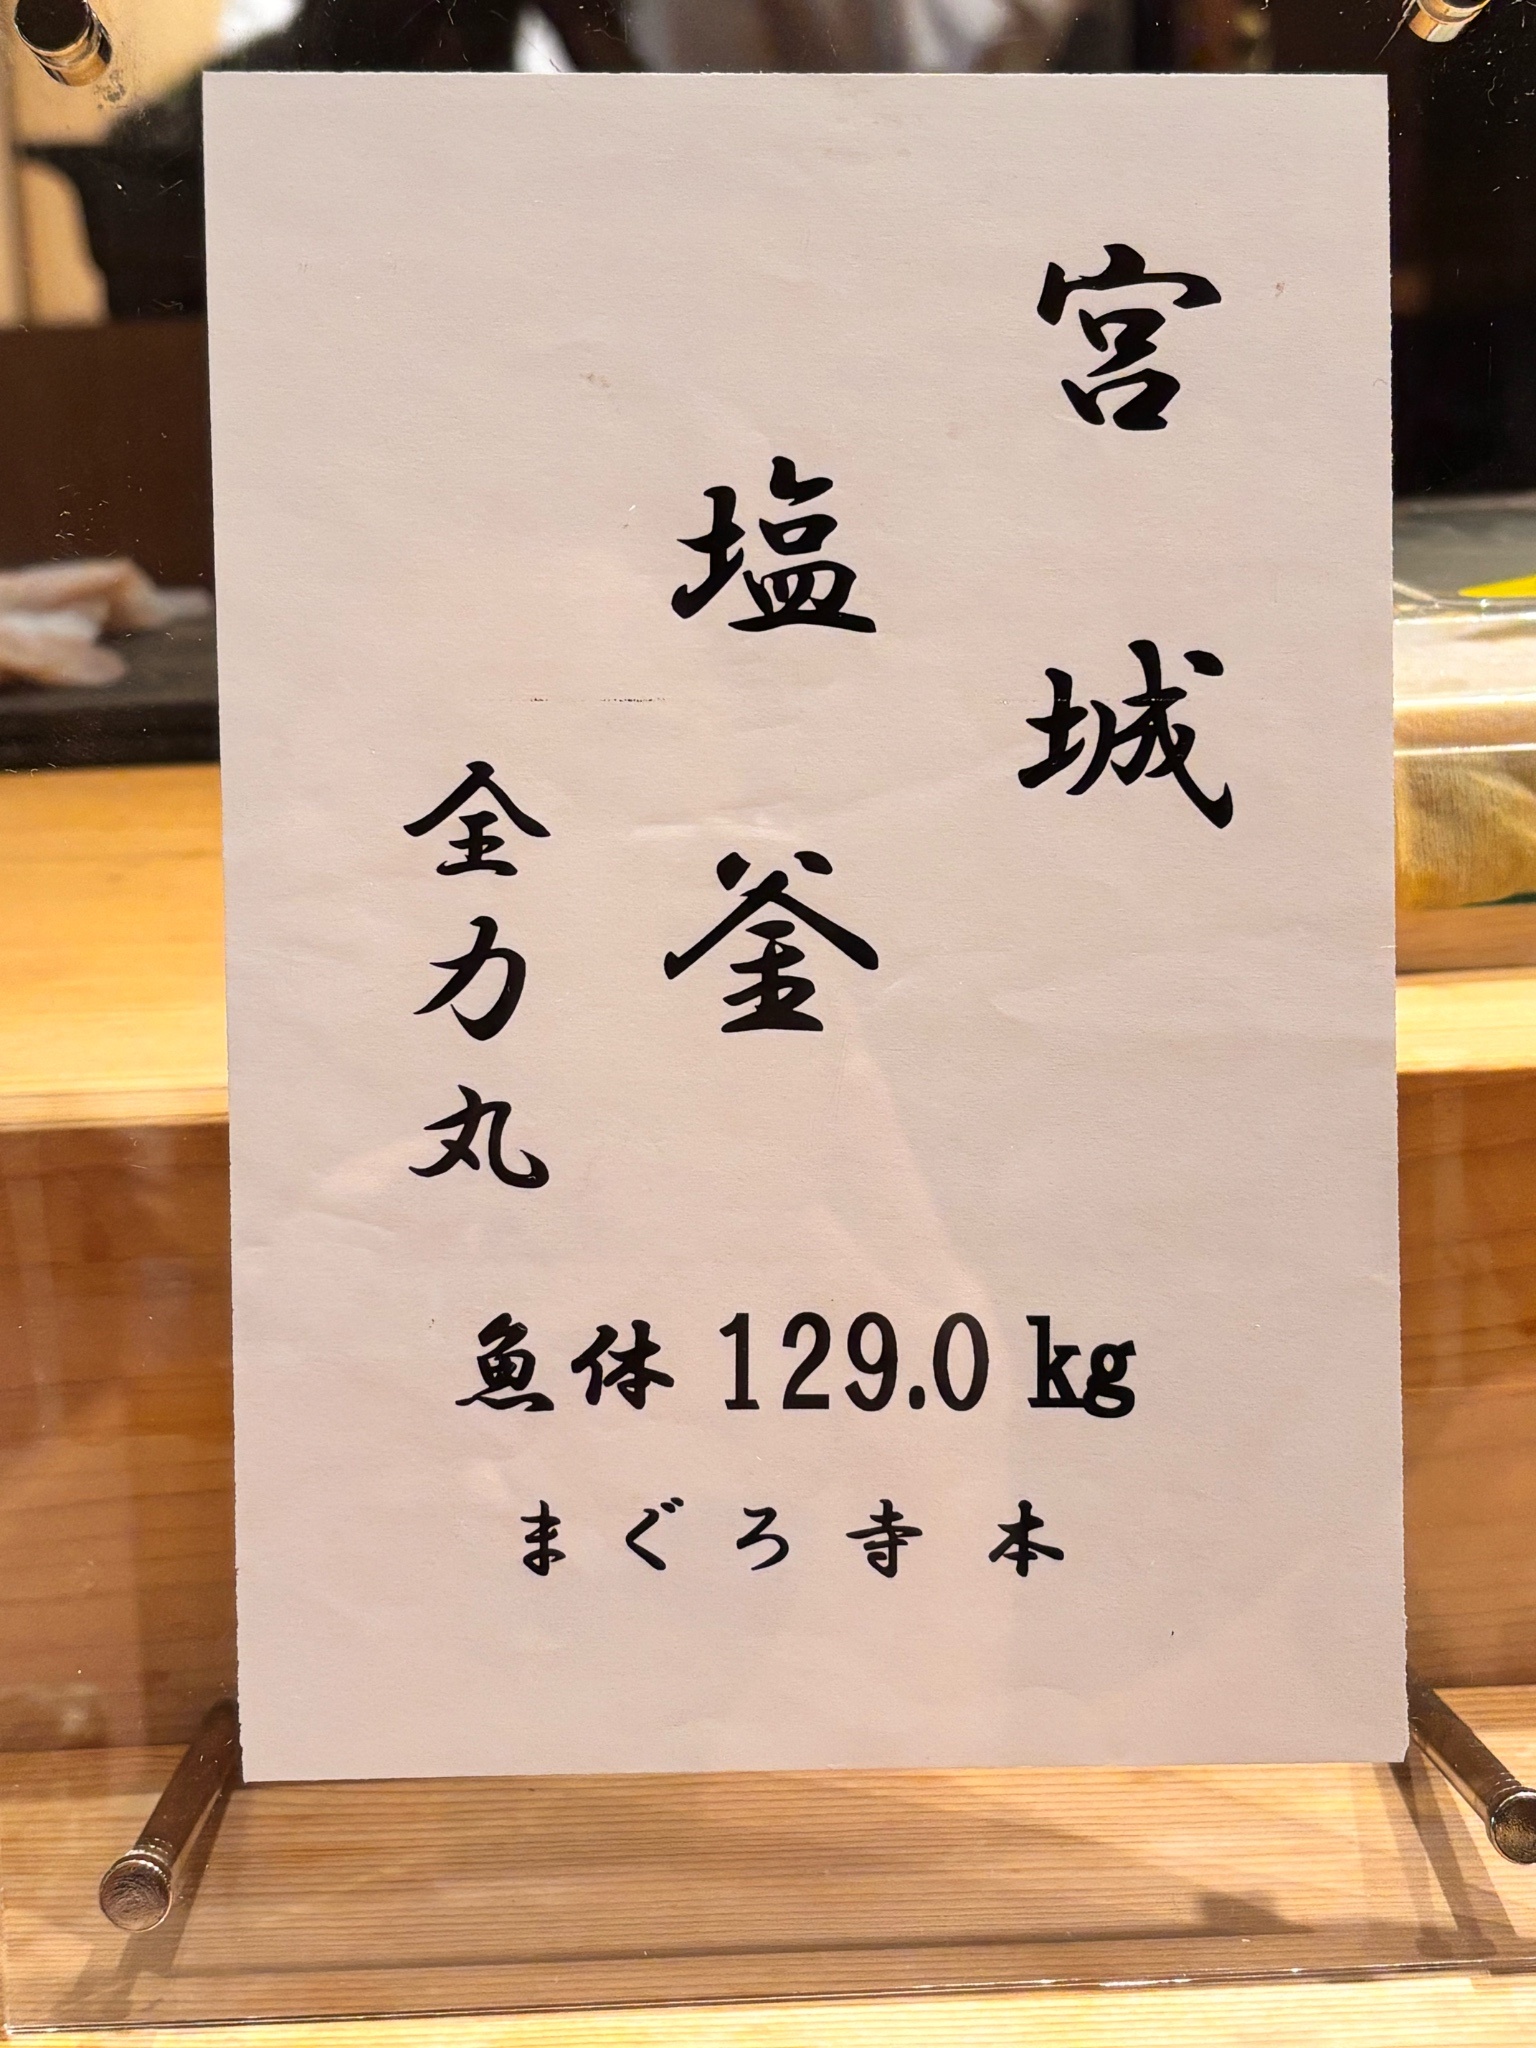 宮城
塩釜
全力丸
魚体 129.0 kg
まぐろ寺本